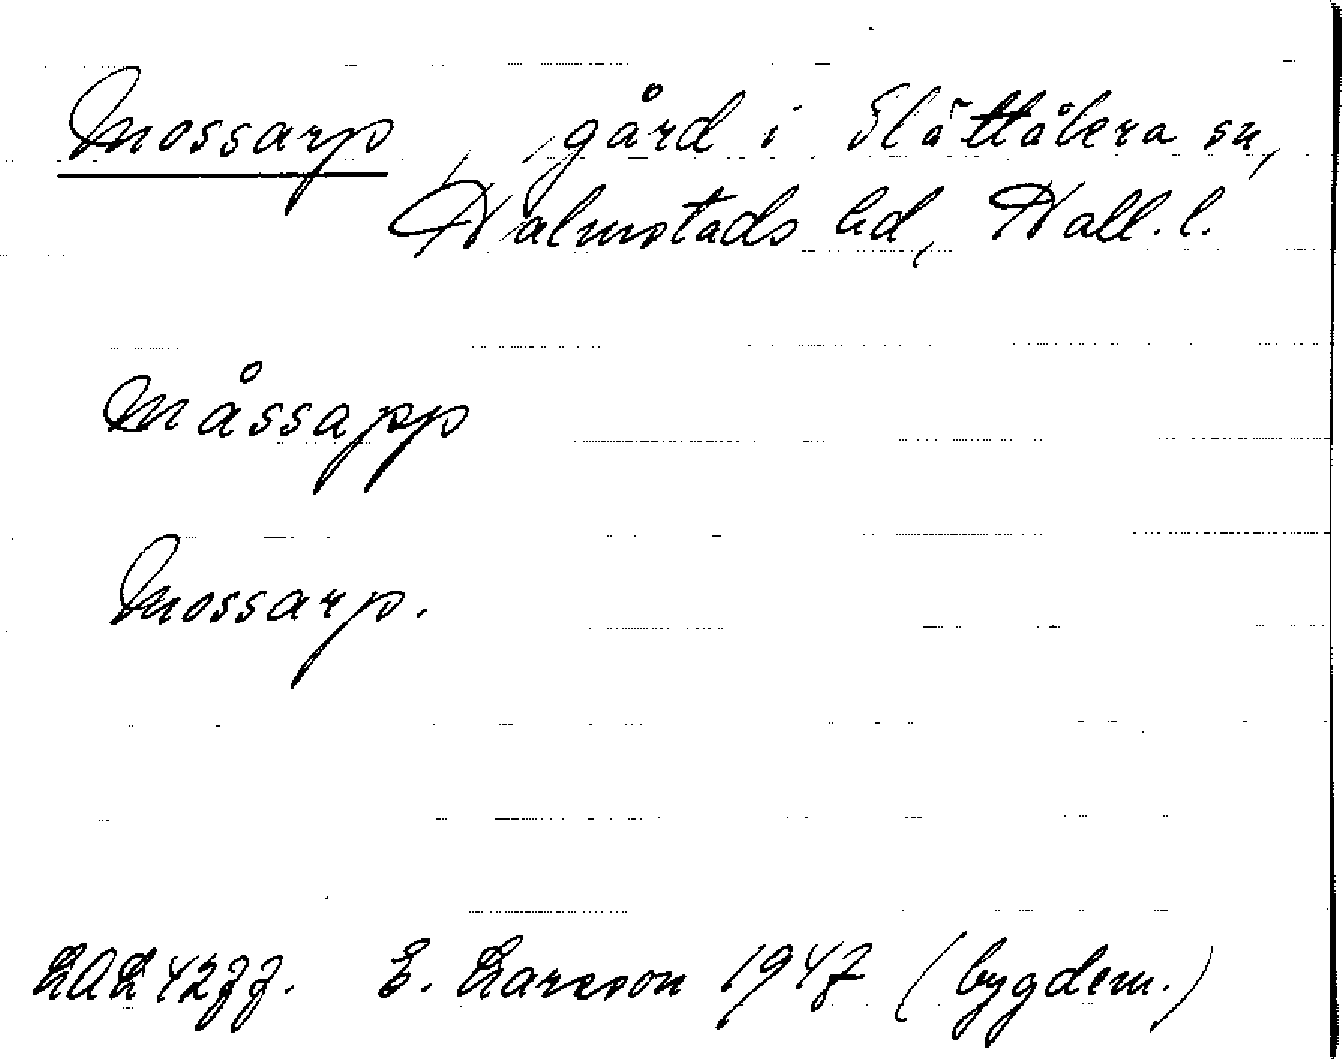 Mossarp, gård i Slättåkra sn,
Halmstads hd, Hall. l.
Måssapp
Mossarp.
LAL 4277. E. Larsson 1947 (bygdem.)